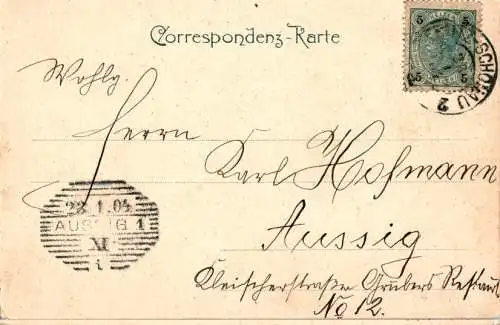 Correspondenz-Karte
5 5
5 5
SCHÖNAU 2
Wohlg.
Herrn
Karl Hofmann
Aussig
Kleischerstraße Grubers Restaur
No 12.
28.1.04
AUSSIG 1
XI
i